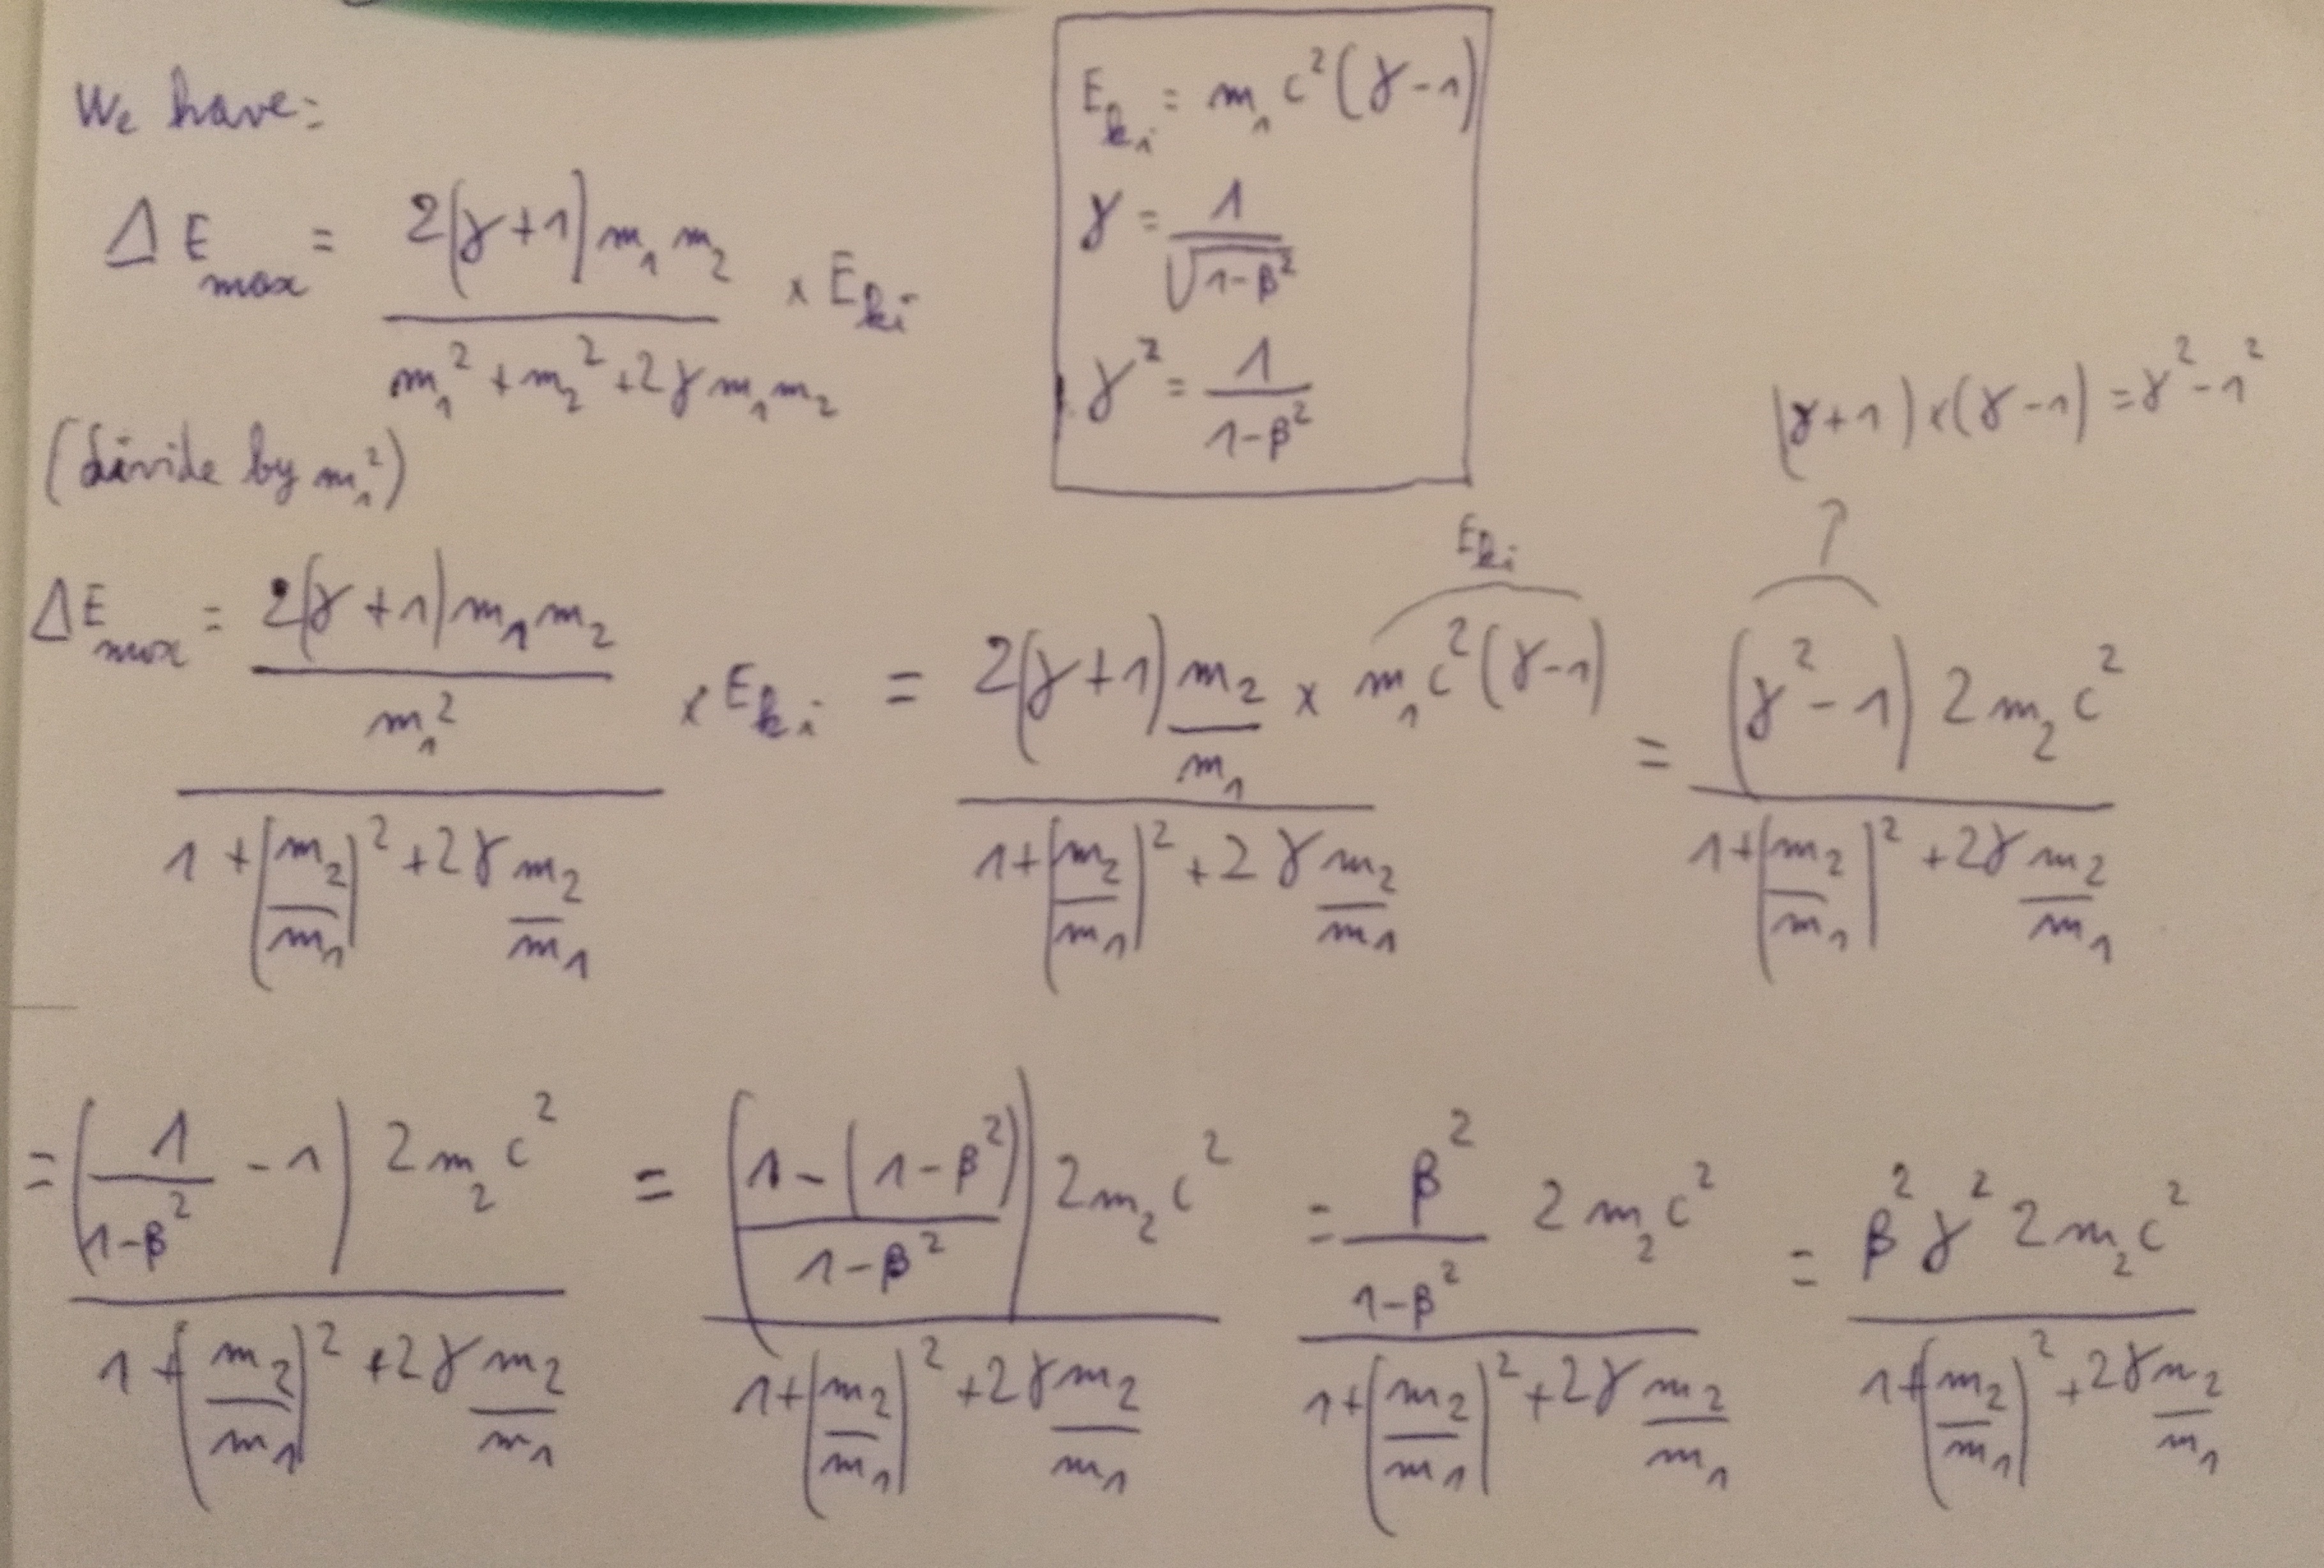 We have:
ΔE_max = (2(γ+1)m₁m₂)/(m₁² + m₂² + 2γm₁m₂) × E_ki
(divide by m₁²)
E_ki = m₁c²(γ-1)
γ = 1/√(1-β²)
γ² = 1/(1-β²)
(γ+1)×(γ-1) = γ²-1²
?
E_ki
ΔE_max = ((2(γ+1)m₁m₂)/m₁²)/(1+(m₂/m₁)²+2γ m₂/m₁) × E_ki = (2(γ+1) m₂/m₁ × m₁c²(γ-1))/(1+(m₂/m₁)²+2γ m₂/m₁) = ((γ²-1) 2m₂c²)/(1+(m₂/m₁)²+2γ m₂/m₁)
= ((1/(1-β²) - 1) 2m₂c²)/(1+(m₂/m₁)²+2γ m₂/m₁) = (((1-(1-β²))/(1-β²)) 2m₂c²)/(1+(m₂/m₁)²+2γ m₂/m₁) = (β²/(1-β²) 2m₂c²)/(1+(m₂/m₁)²+2γ m₂/m₁) = (β²γ² 2m₂c²)/(1+(m₂/m₁)²+2γ m₂/m₁)